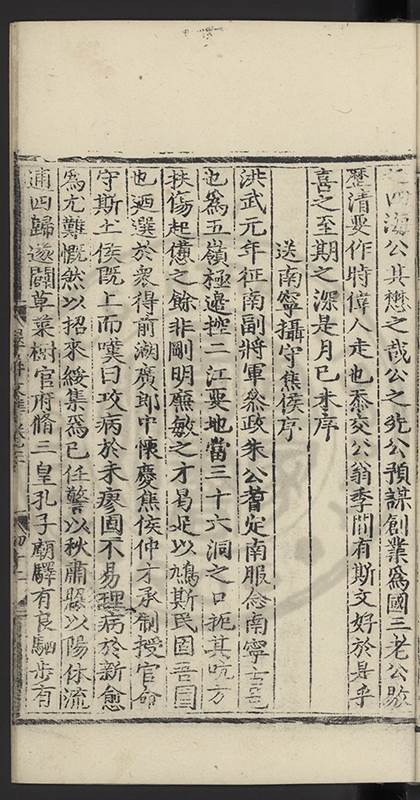 四海公其懋之哉公之先公預謀創業為國三老公敭
歷清要作時偉人走也忝交公翁季間有斯文好於是乎
喜之至期之深是月己未序
送南寧攝守焦侯序
洪武元年征南副將軍叅政朱公耆定南服念南寧古邕
也為五嶺極邊控二江要地當三十六洞之口扼其吭方
扶傷起僨之餘非剛明廉敏之才曷足以鳩斯民固吾圉
也廼選於衆得前湖廣郎中懷慶焦侯仲才承制授官命
守斯土侯既上而嘆曰攻病於未瘳固不易理病於新愈
為尤難慨然以招來綏集為己任警以秋肅煦以陽休流
逋四歸遂闢草萊樹官府脩三皇孔子廟驛有良駟步有